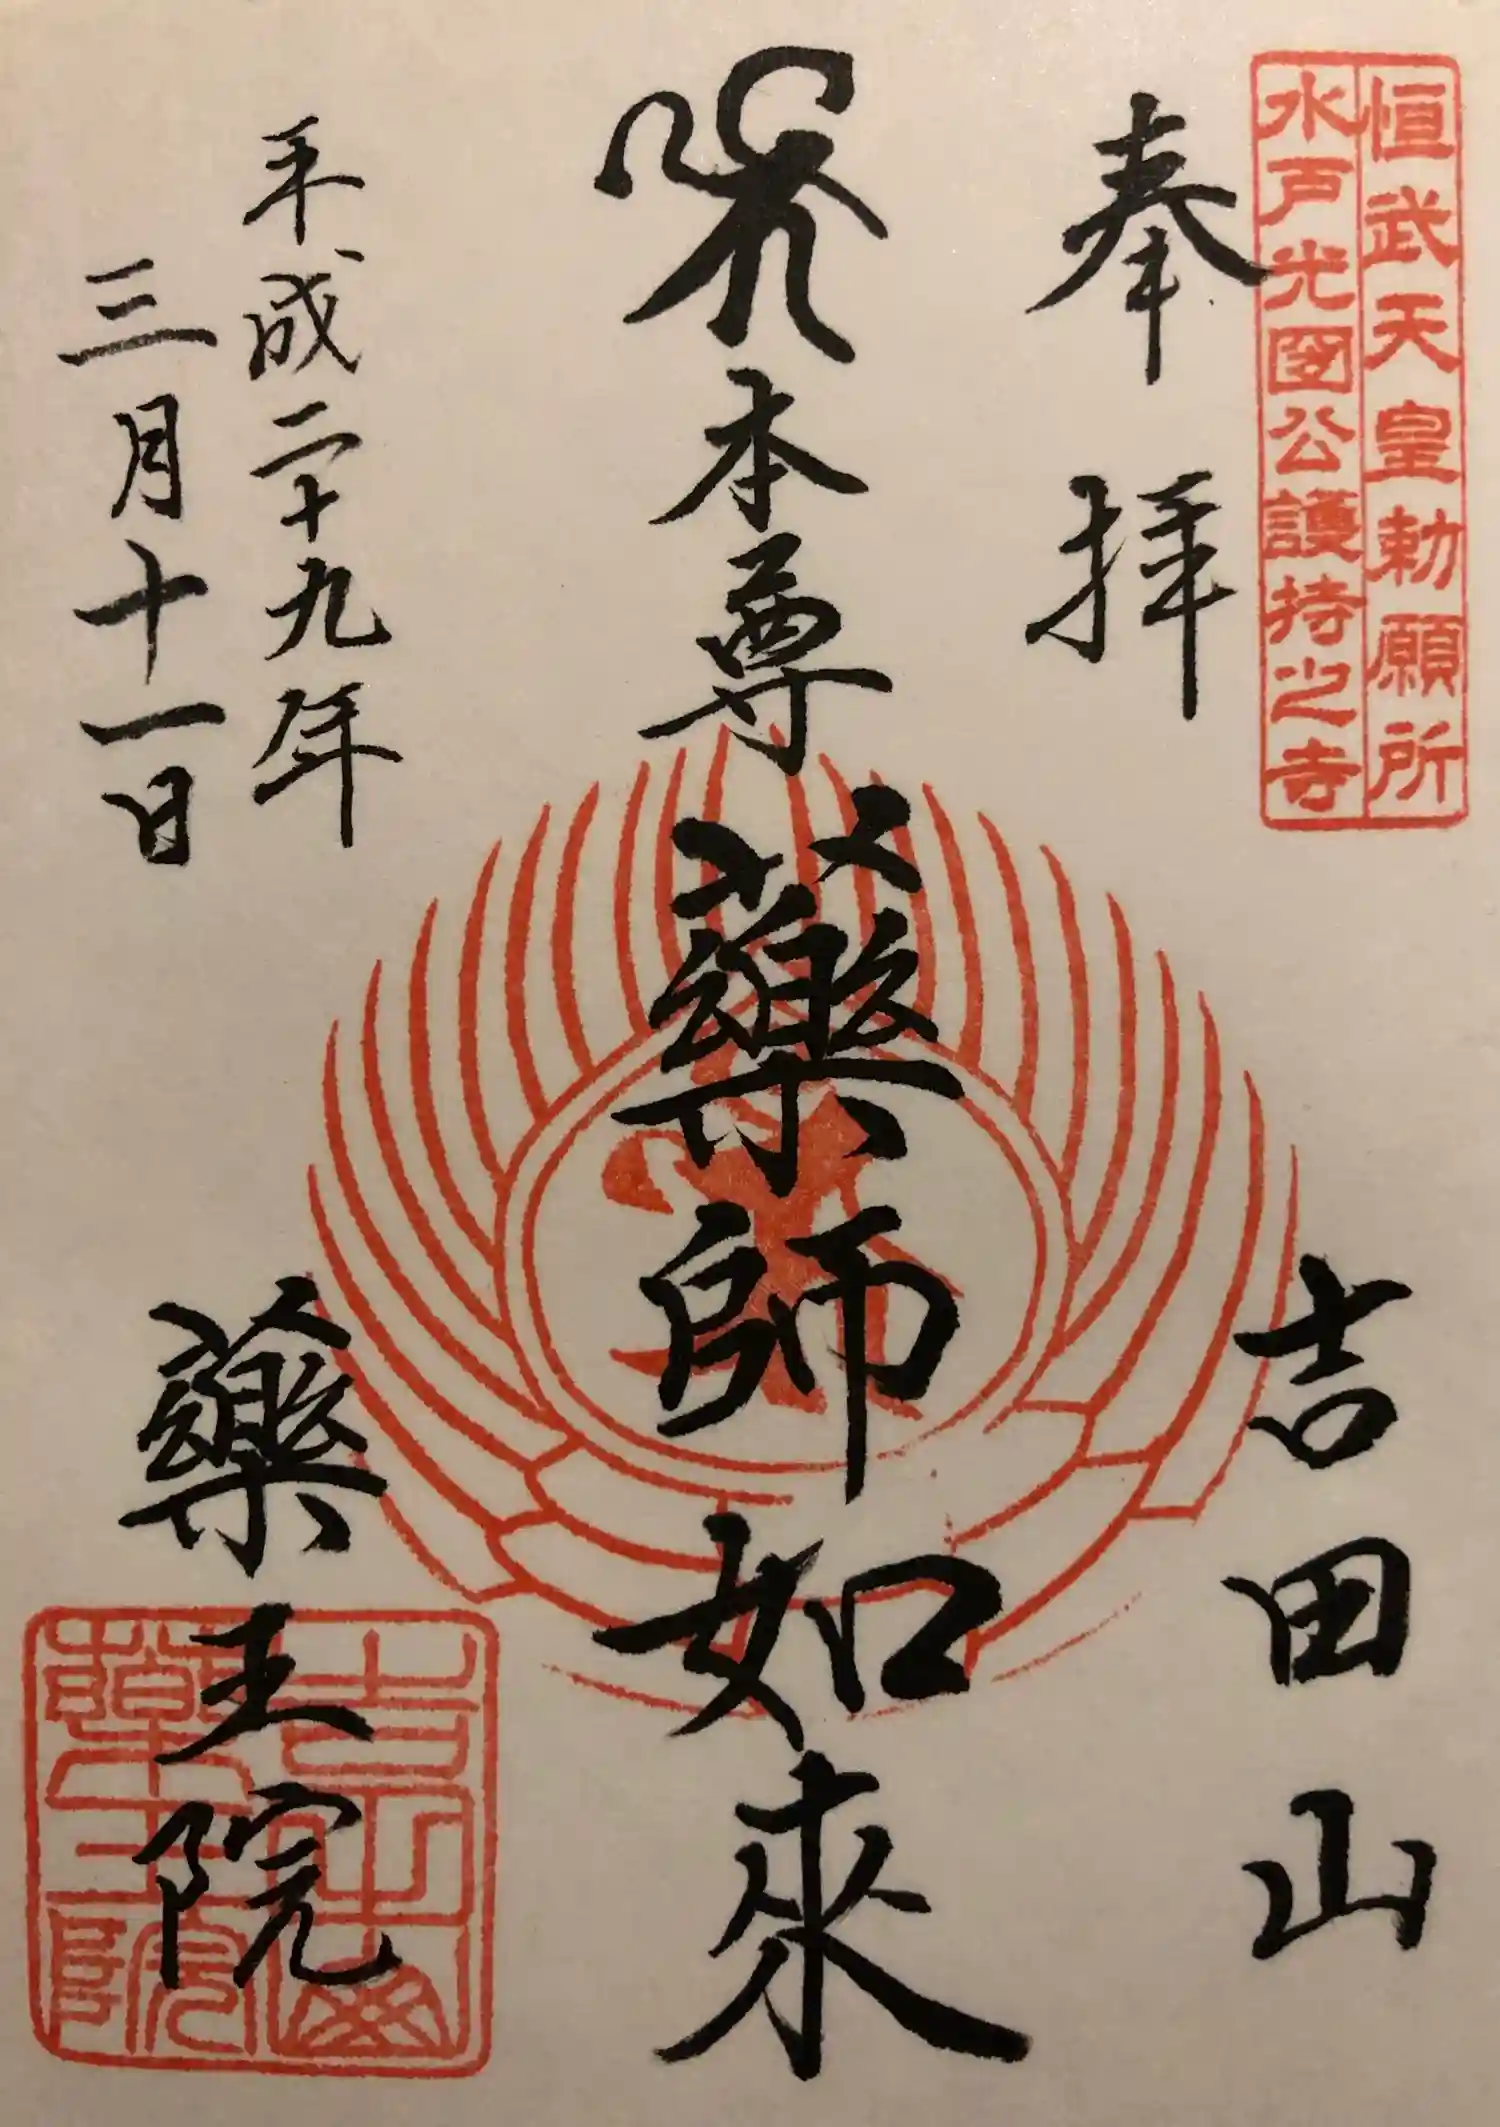 恒武天皇勅願所
水戸光圀公護持之寺
奉拝
吉田山
本尊薬師如來
平成二十九年
三月十一日
薬王院